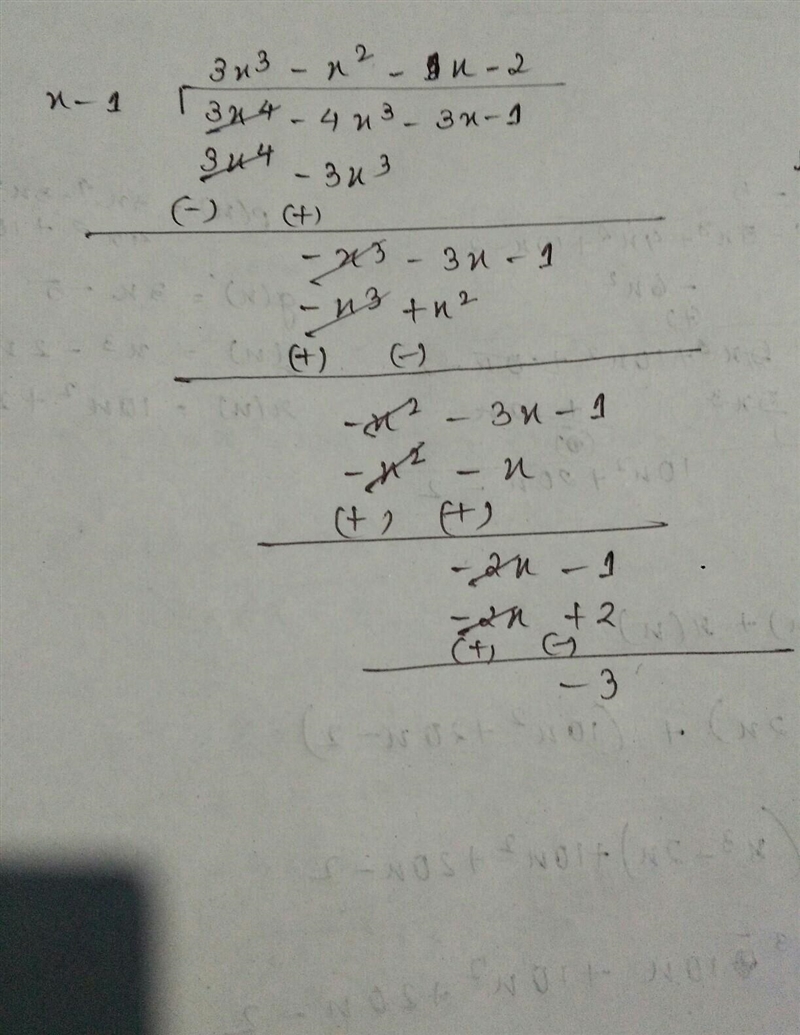 3x³ - x² - 1x - 2
x - 1
3x⁴ - 4x³ - 3x - 1
3x⁴ - 3x³
(-) (+)
- x³ - 3x - 1
- x³ + x²
(+) (-)
- x² - 3x - 1
- x² - x
(+) (+)
- 2x - 1
- 2x + 2
(+) (-)
- 3